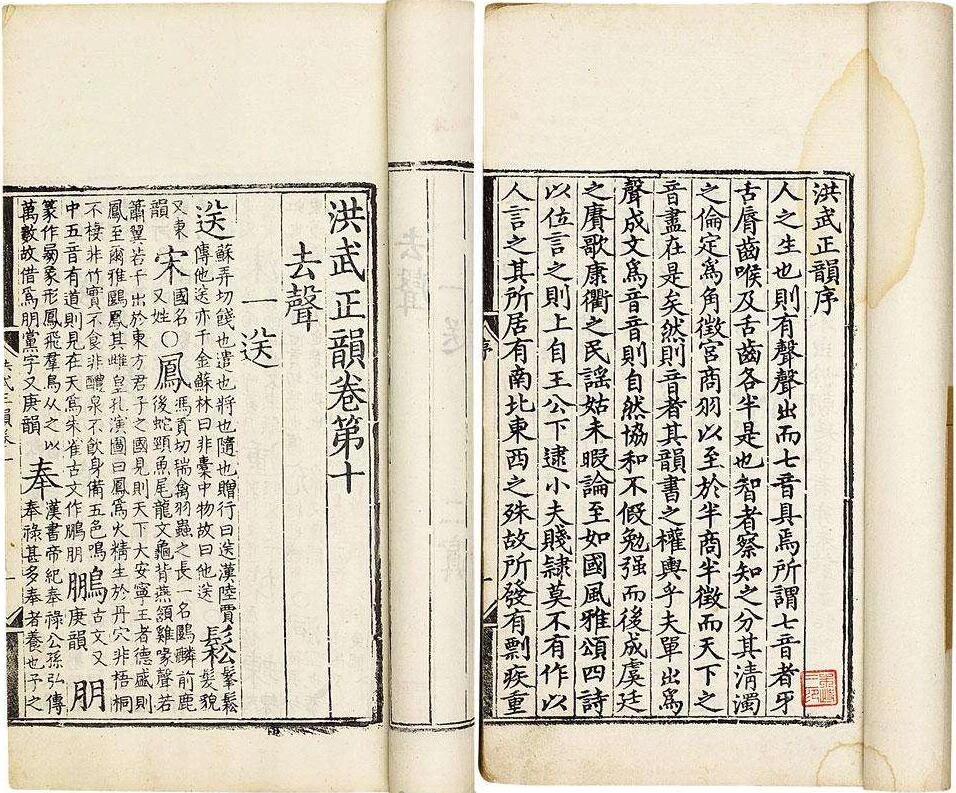 洪武正韻序
人之生也則有聲聲出而七音具焉所謂七音者牙
舌脣齒喉及舌齒各半是也智者察知之分其清濁
之倫定爲角徵宮商羽以至於半商半徵而天下之
音盡在是矣然則音者其韻書之權輿乎夫單出爲
聲成文爲音音則自然協和不假勉强而後成虞廷
之賡歌康衢之民謠姑未暇論至如國風雅頌四詩
以位言之則上自王公下逮小夫賤隷莫不有作以
人言之其所居有南北東西之殊故所發有剽疾重
序
洪武正韻卷第十
去聲
一送
送蘇弄切餞也遣也將也隨也贈行曰送漢陸賈
傳他送亦千金蘇林曰非囊中物故曰他送鬆鬆髮貌
又東韻宋國名又姓〇鳳馮貢切瑞禽羽蟲之長一名鶠麟前鹿
後蛇頸魚尾龍文龜背燕頷雞喙聲若
簫翼若干出於東方君子之國見則天下大安寧王者德盛則
鳳至爾雅鶠鳳其雌皇孔演圖曰鳳爲火精生於丹穴非梧桐
不棲非竹實不食非醴泉不飲身備五色鳴
中五音有道則見在天爲朱雀古文作鵬朋鵬古文又庚韻朋
篆作象形鳳飛羣鳥從之以
萬數故借爲朋黨字又庚韻奉漢書帝紀奉祿公孫弘傳
奉祿甚多奉者養也子之